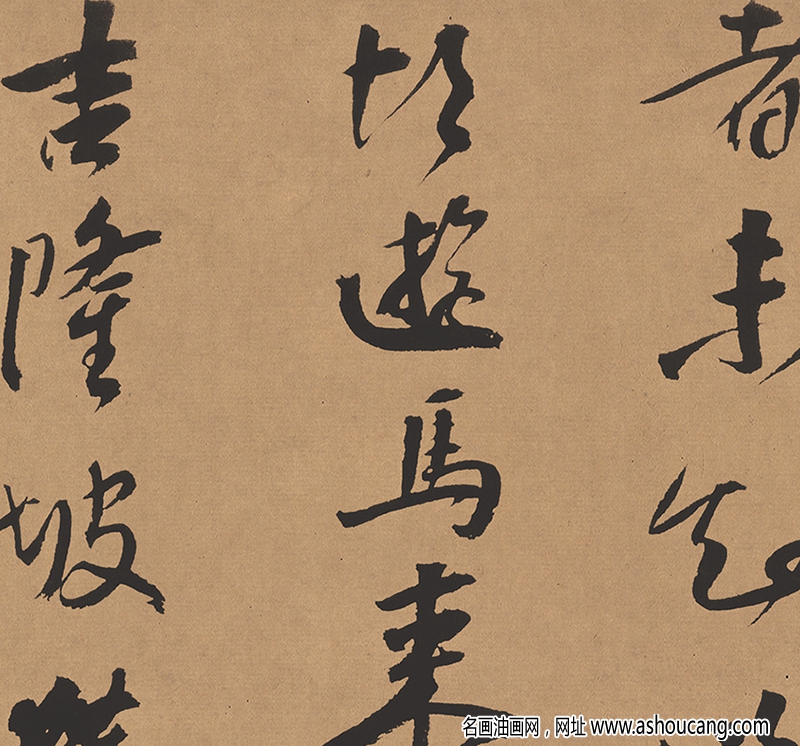 者未知
遊馬来
吉隆坡
名画油画网，网址 www.ashoucang.com